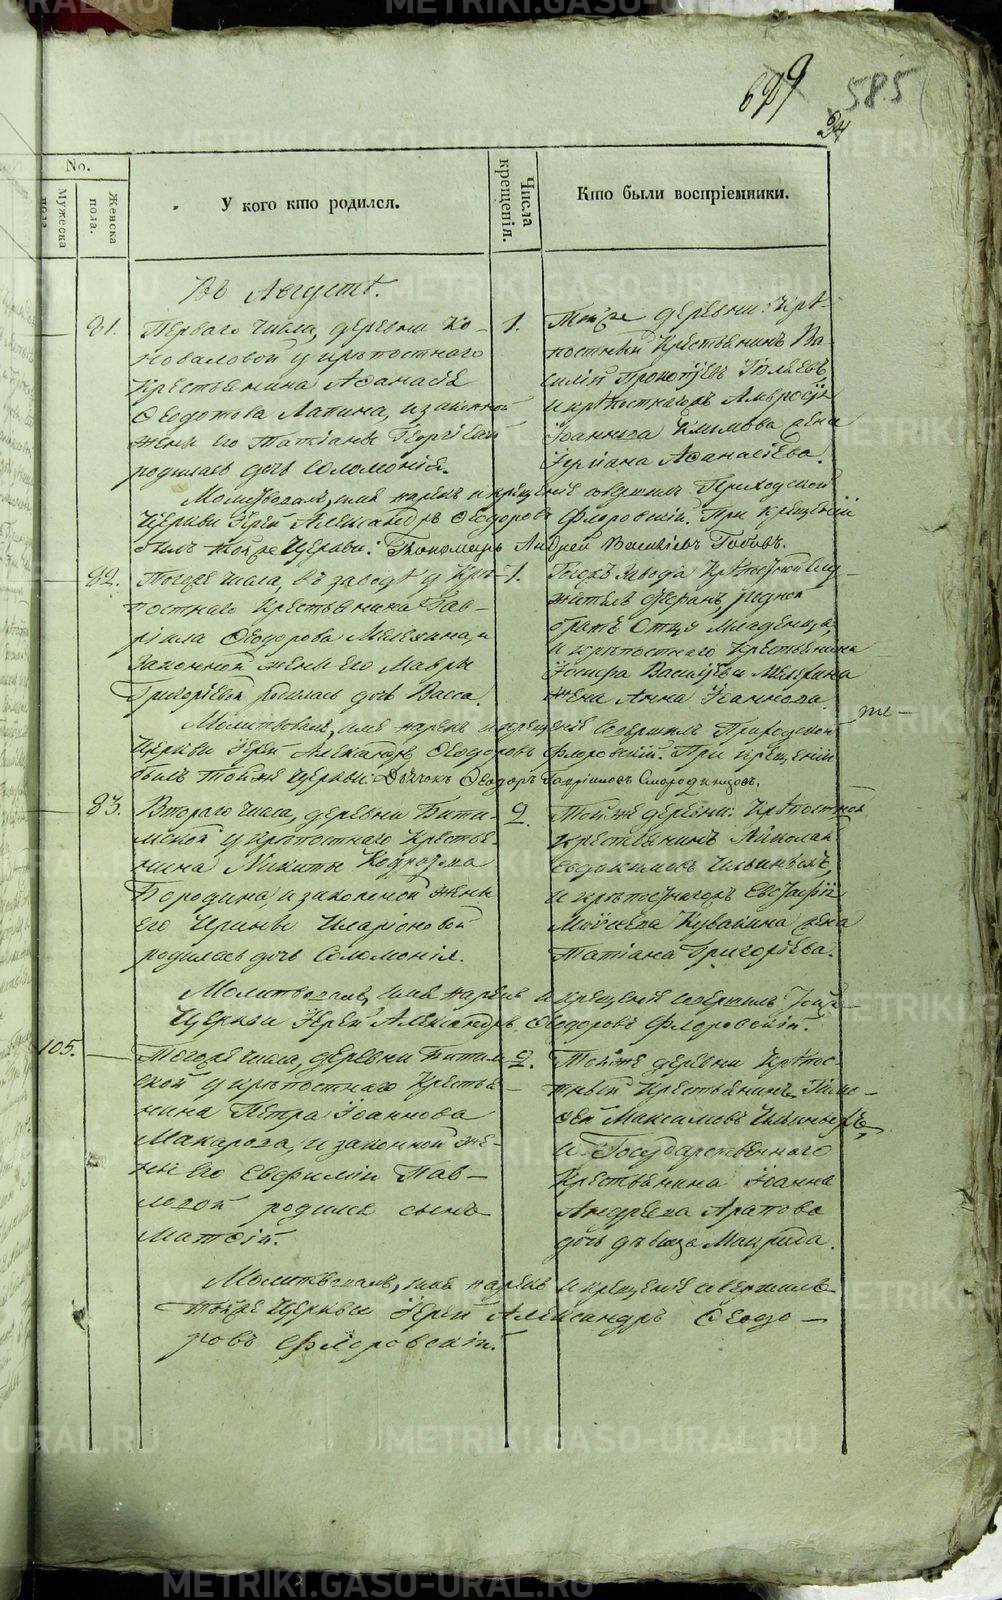 629
585
34
No.
Мужеска пола.
Женска пола.
У кого кто родился.
Числа крещенія.
Кто были воспріемники.
Въ Августѣ.
81.
Перваго числа, деревни Ко-
новаловой у крѣпостнаго
Крестьянина Аѳанасія
Ѳеодотова Лапина, и законной
жены его Татіаны Георгіевой
родилась дочь Соломонія.
1.
Тойже деревни: Крѣ-
постный Крестьянинъ Ва-
силій Прокопіевъ
и крѣпостнаго Амвросія
Іоаннова Климова жена
Іуліана Аѳанасіева.
Молитвовалъ, имя нарекъ и крещеніе совершилъ Приходской
Церкви Іерей Александръ Ѳеодоровъ Флоровскій. При крещеніи
былъ тойже Церкви: Пономарь Андрей Васильевъ
82.
Тогоже числа, въ заводѣ у Крѣ-
постнаго Крестьянина Гав-
ріила Ѳеодорова и
законной жены его Мавры
Григоріевой родилась дочь Васса.
1.
Тогожъ Завода Крѣпостной слу-
житель родной
братъ Отцу Младенца,
и крѣпостнаго Крестьянина
Іосифа Васильева
жена Анна Іоаннова.
Молитвовалъ, имя нарекъ и крещеніе совершилъ Приходской
Церкви Іерей Александръ Ѳеодоровъ Флоровскій. При крещеніи
былъ тойже Церкви: Дьячокъ Ѳеодоръ Гавріиловъ Смородинцовъ.
83.
Втораго числа, деревни Бити-
мской у крѣпостнаго Крестья-
нина Никиты
Бородина и законной жены
его Ирины Иларіоновой
родилась дочь Соломонія.
2.
Тойже деревни: Крѣпостной
крестьянинъ Николай
Евдокимовъ Ильиныхъ,
и крѣпостнагожъ Евстафія
Моисеева Кувакина жена
Татіана Григоріева.
Молитвовалъ, имя нарекъ и крещеніе совершилъ тойже
Церкви Іерей Александръ Ѳеодоровъ Флоровскій.
105.
Тогоже числа, деревни Битим-
ской у крѣпостнаго Крестья-
нина Петра Іоаннова
Макарова, и законной же-
ны его Евфиміи Пав-
ловой родился сынъ
Матѳій.
2.
Тойже деревни Крѣпос-
тный Крестьянинъ Тимо-
ѳей Максимовъ Ильиныхъ,
и Государственнаго
Крестьянина Іоанна
Андреева Арапова
дочь дѣвица Маврида.
Молитвовалъ, имя нарекъ и крещеніе совершилъ
тойже Церкви Іерей Александръ Ѳеодо-
ровъ Флоровскій.
METRIKI.GASO-URAL.RU